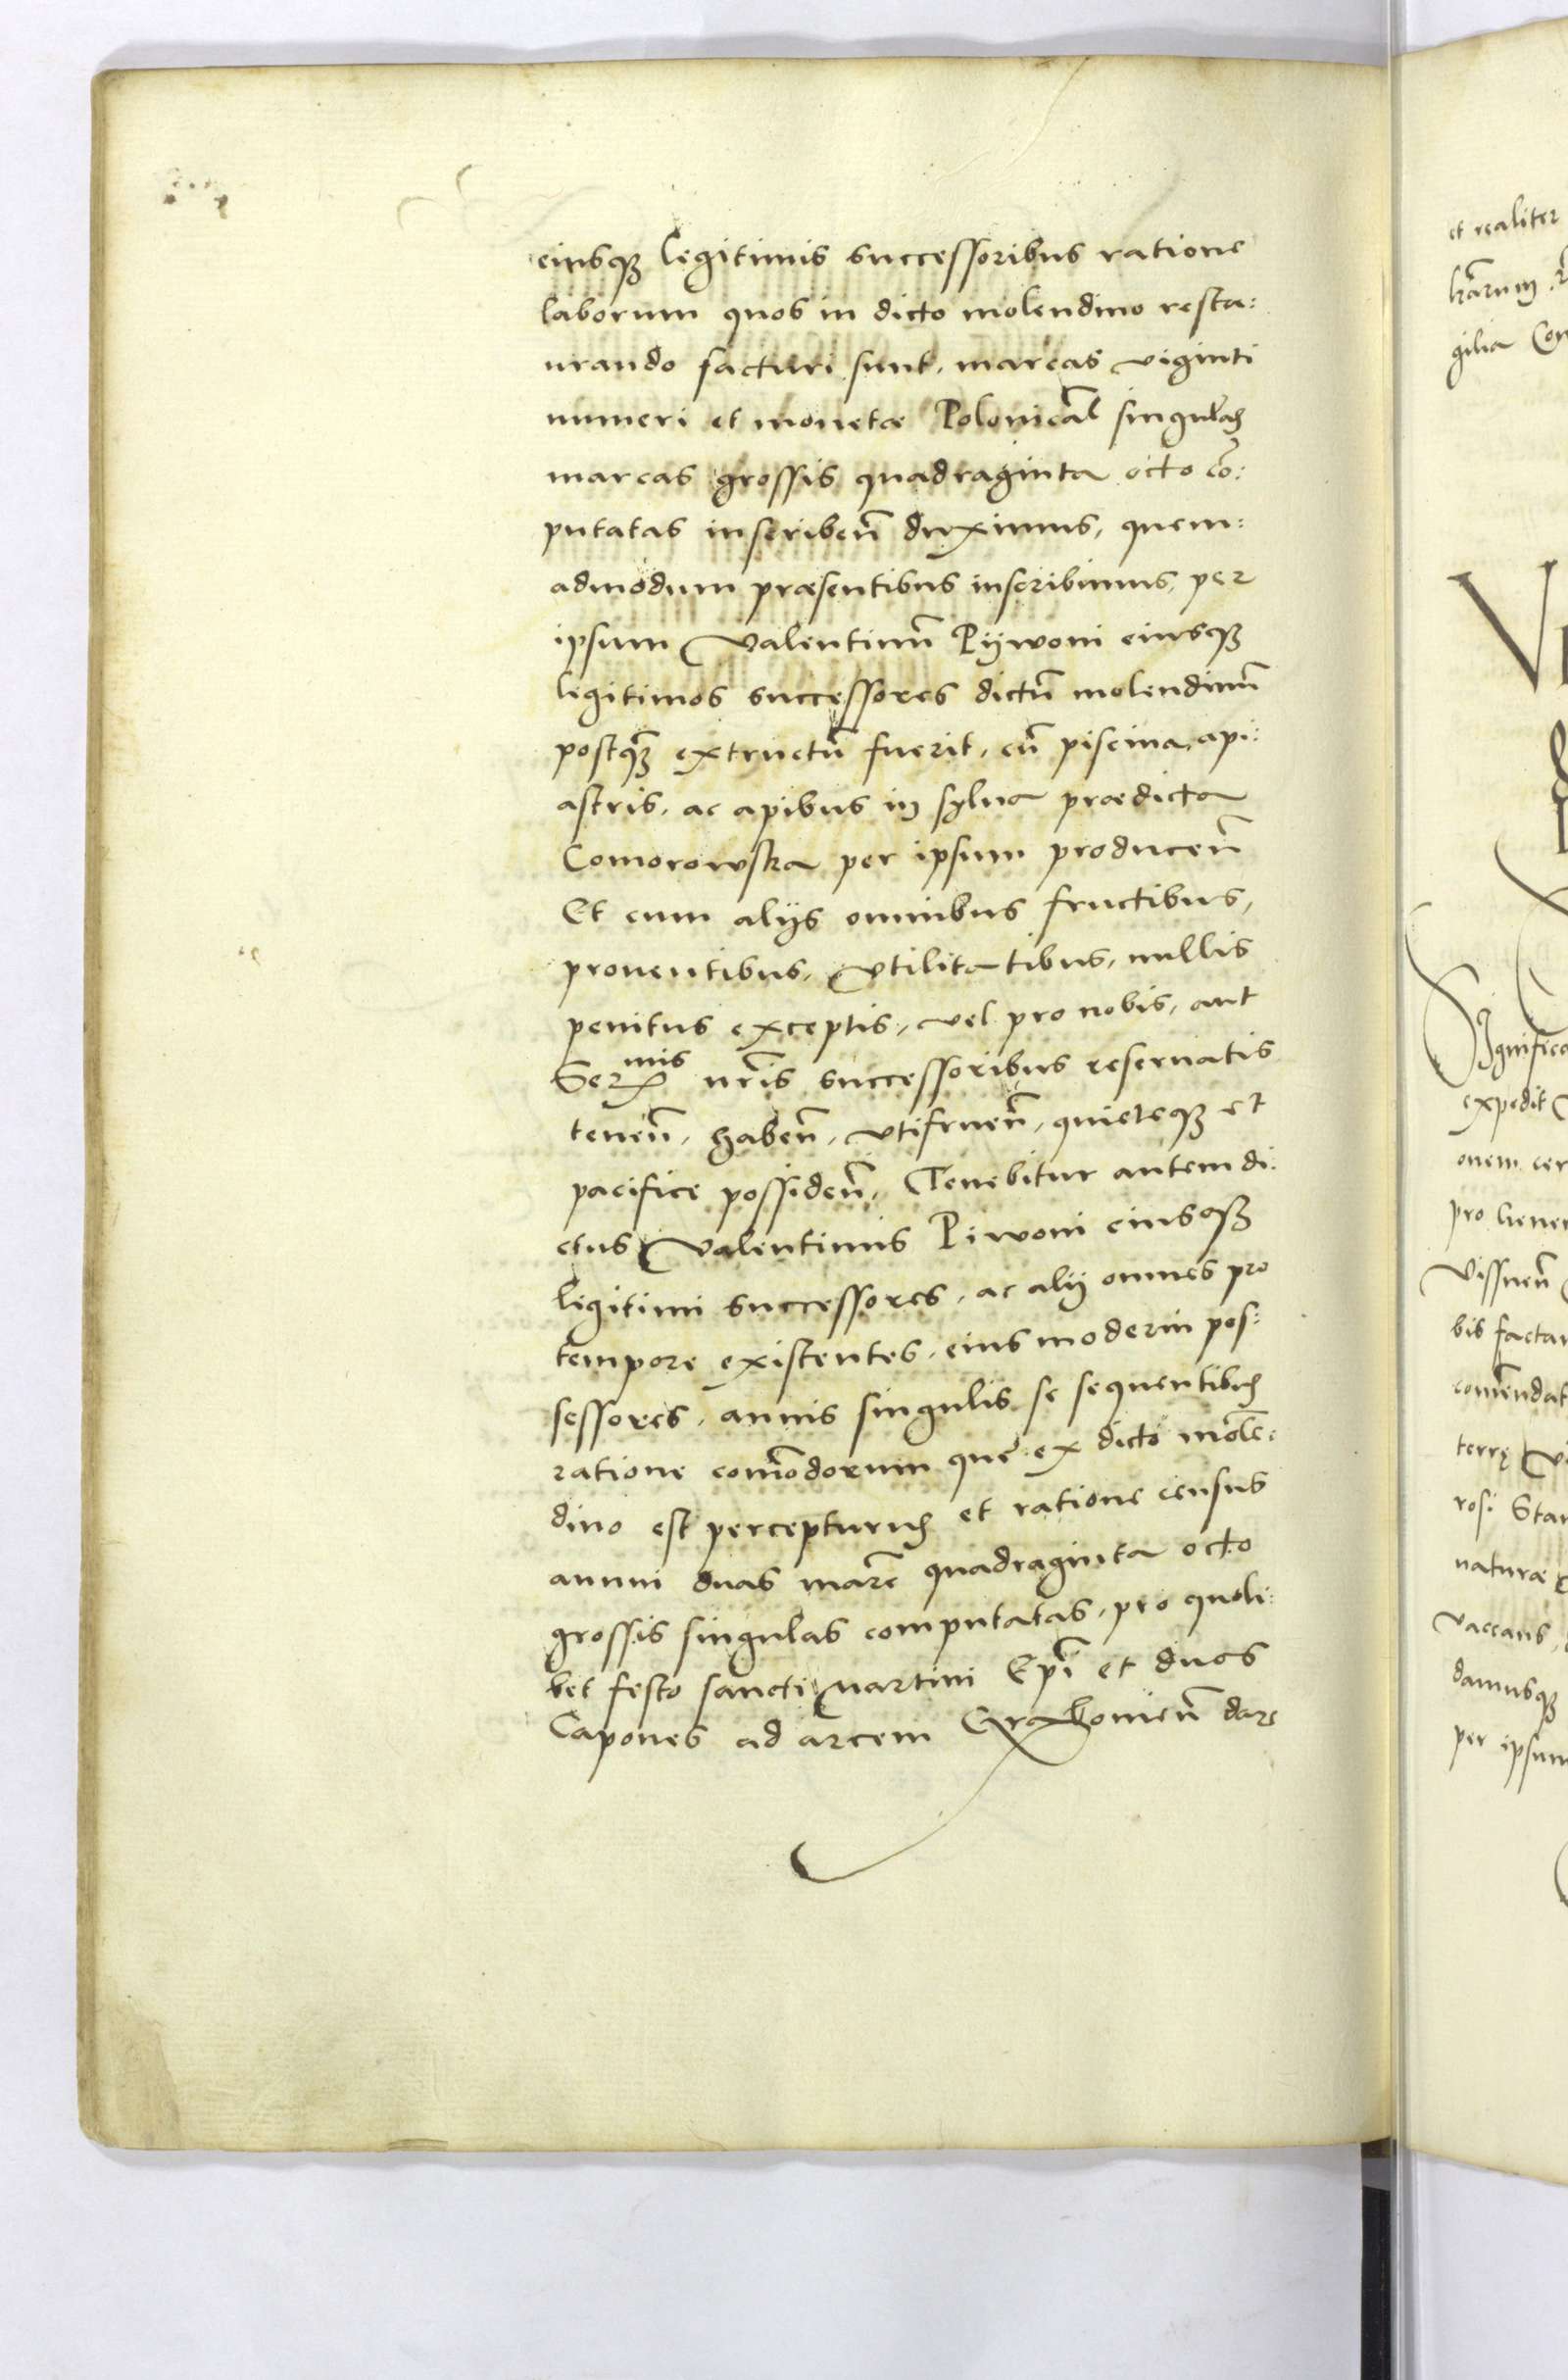 eiusq₃ legitimis successoribus ratione
laborum quos in dicto molendino resta:
urando facturi sunt, marcas viginti
numeri et monetæ Polonical̃ singulas
marcas grossis quadraginta octo cõ:
putatas inscribeñ duximus, quem:
admodum præsentibus inscribimus, per
ipsum Valentinũ Pijwoni eiusq₃
legitimos successores dictũ molendinũ
postq̃₃ extructũ fuerit, cũ piscina, api:
astris, ac apibus in sylua prædicta
Comorowska per ipsum produceñ
Et cum alijs omnibus fructibus,
prouentibus, Vtilitatibus, nullis
penitus exceptis, vel pro nobis, aut
Ser^mis nr̃is successoribus reseruatis
teneñ, habeñ, vtifrueñ, quieteq₃ et
pacifice possideñ, Tenebitur autem di:
ctus Valentinus Piwoni eiusq₃
legitimi successores, ac alij omnes pro
tempore existentes, eius moderni pos:
sessores, annis singulis se sequentibus
ratione com̃odorum que ex dicto molen:
dino est percepturus et ratione census
annui duas marc̃ quadraginta octo
grossis singulas computatas, pro quoli:
bet festo sancti Martini Ep̃i et duos
Capones ad arcem Grakouieñ dare
et realiter
gilia Con
Significa
expedit
onem cer
pro hener
Vissneñ
bis factam
com̃endat
terrę Vi
rosi Stan
naturæ
vaccans,
damusq₃
per ipsum